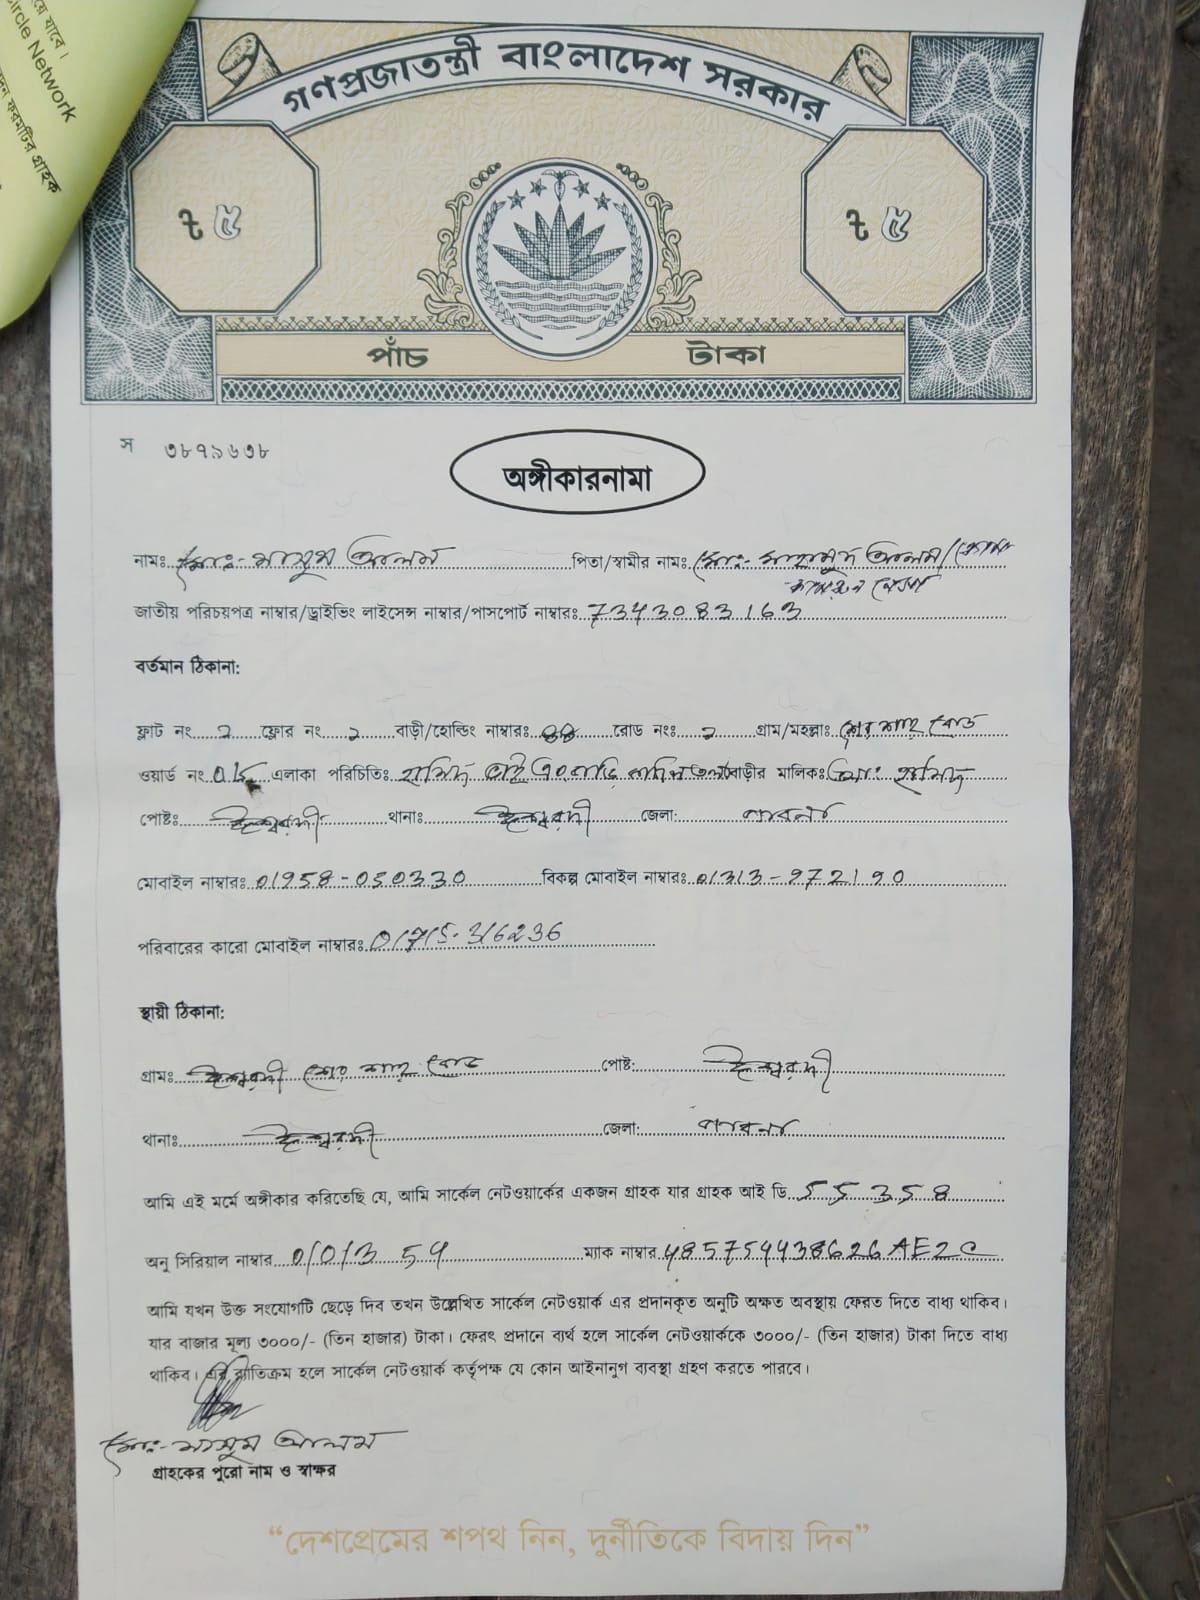 য়ে যাবে।
ircle Network
দন ফরমটির গ্রাহক
গণপ্রজাতন্ত্রী বাংলাদেশ সরকার
৳ ৫ ৳ ৫
পাঁচ টাকা
স ৩৮৭৯৬৩৮
অঙ্গীকারনামা
নামঃ মোঃ- মাসুম আলম পিতা/স্বামীর নামঃ মোঃ- মাহামুদ আলম/
জাতীয় পরিচয়পত্র নাম্বার/ড্রাইভিং লাইসেন্স নাম্বার/পাসপোর্ট নাম্বারঃ 7343083163
বর্তমান ঠিকানা:
ফ্লাট নং ২ ফ্লোর নং ১ বাড়ী/হোল্ডিং নাম্বারঃ রোড নংঃ ২ গ্রাম/মহল্লাঃ শের শাহ রোড
ওয়ার্ড নং এলাকা পরিচিতিঃ হামিদ ভাই এর বাড়ি বাড়ীর মালিকঃ মোঃ হামিদ
পোষ্টঃ ঈশ্বরদী থানাঃ ঈশ্বরদী জেলা: পাবনা
মোবাইল নাম্বারঃ 01958-050330 বিকল্প মোবাইল নাম্বারঃ 01313-972190
পরিবারের কারো মোবাইল নাম্বারঃ 01715-316236
স্থায়ী ঠিকানা:
গ্রামঃ ঈশ্বরদী শের শাহ রোড পোষ্ট: ঈশ্বরদী
থানাঃ ঈশ্বরদী জেলা: পাবনা
আমি এই মর্মে অঙ্গীকার করিতেছি যে, আমি সার্কেল নেটওয়ার্কের একজন গ্রাহক যার গ্রাহক আই ডি 55358
অনু সিরিয়াল নাম্বার 010135 ম্যাক নাম্বার 485754438626AE2C
আমি যখন উক্ত সংযোগটি ছেড়ে দিব তখন উল্লেখিত সার্কেল নেটওয়ার্ক এর প্রদানকৃত অনুটি অক্ষত অবস্থায় ফেরত দিতে বাধ্য থাকিব।
যার বাজার মূল্য ৩০০০/- (তিন হাজার) টাকা। ফেরৎ প্রদানে ব্যর্থ হলে সার্কেল নেটওয়ার্ককে ৩০০০/- (তিন হাজার) টাকা দিতে বাধ্য
থাকিব। এর ব্যতিক্রম হলে সার্কেল নেটওয়ার্ক কর্তৃপক্ষ যে কোন আইনানুগ ব্যবস্থা গ্রহণ করতে পারবে।
মোঃ- মাসুম আলম
গ্রাহকের পুরো নাম ও স্বাক্ষর
“দেশপ্রেমের শপথ নিন, দুর্নীতিকে বিদায় দিন”